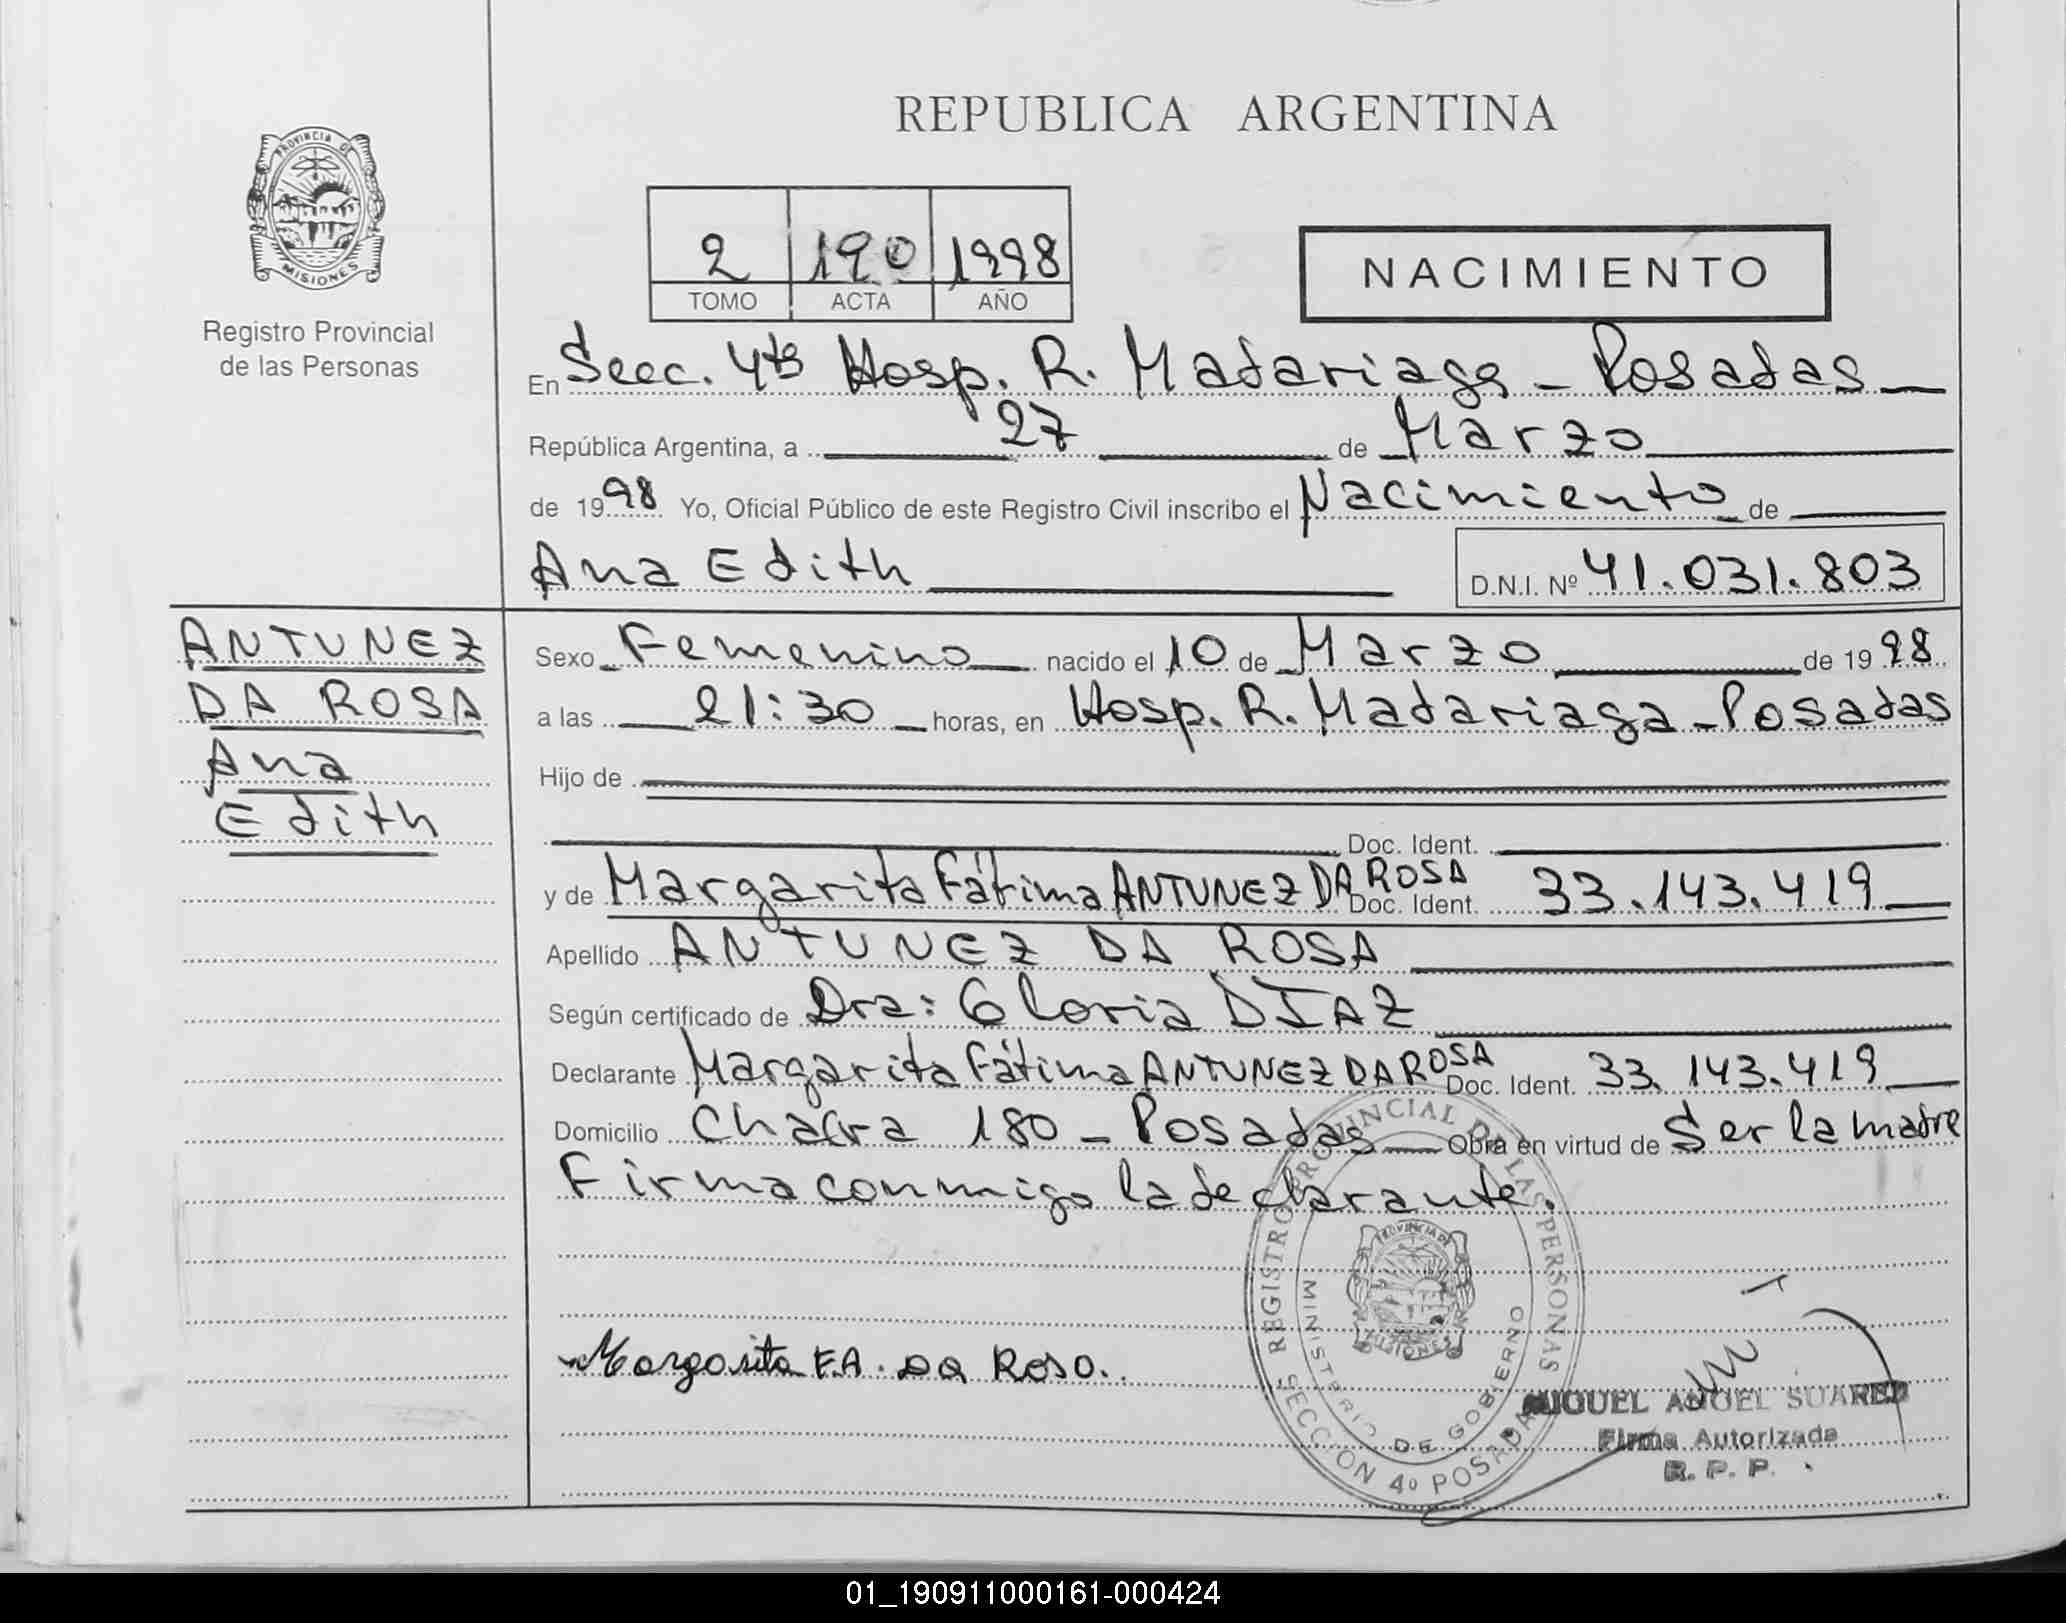 REPUBLICA ARGENTINA
PROVINCIA DE
MISIONES
Registro Provincial
de las Personas
2 190 1998
TOMO ACTA AÑO
NACIMIENTO
En Secc. 4ta Hosp. R. Madariaga - Posadas
República Argentina, a 27 de Marzo
de 1998 Yo, Oficial Público de este Registro Civil inscribo el Nacimiento de
Ana Edith D.N.I. Nº 41.031.803
ANTUNEZ
DA ROSA
Ana
Edith
Sexo Femenino nacido el 10 de Marzo de 1998
a las 21:30 horas, en Hosp. R. Madariaga - Posadas
Hijo de
Doc. Ident.
y de Margarita Fátima ANTUNEZ DA ROSA Doc. Ident. 33.143.419
Apellido ANTUNEZ DA ROSA
Según certificado de Dra: Gloria DIAZ
Declarante Margarita Fátima ANTUNEZ DA ROSA Doc. Ident. 33.143.419
Domicilio Chacra 180 - Posadas Obra en virtud de Ser la madre
Firma conmigo la declarante.
REGISTRO PROVINCIAL DE LAS PERSONAS
SECCION 4º POSADAS
MINISTERIO DE GOBIERNO
PROVINCIA DE
MISIONES
Margarita F.A. Da Rosa.
MIGUEL ANGEL SUAREZ
Firma Autorizada
R. P. P.
01_190911000161-000424